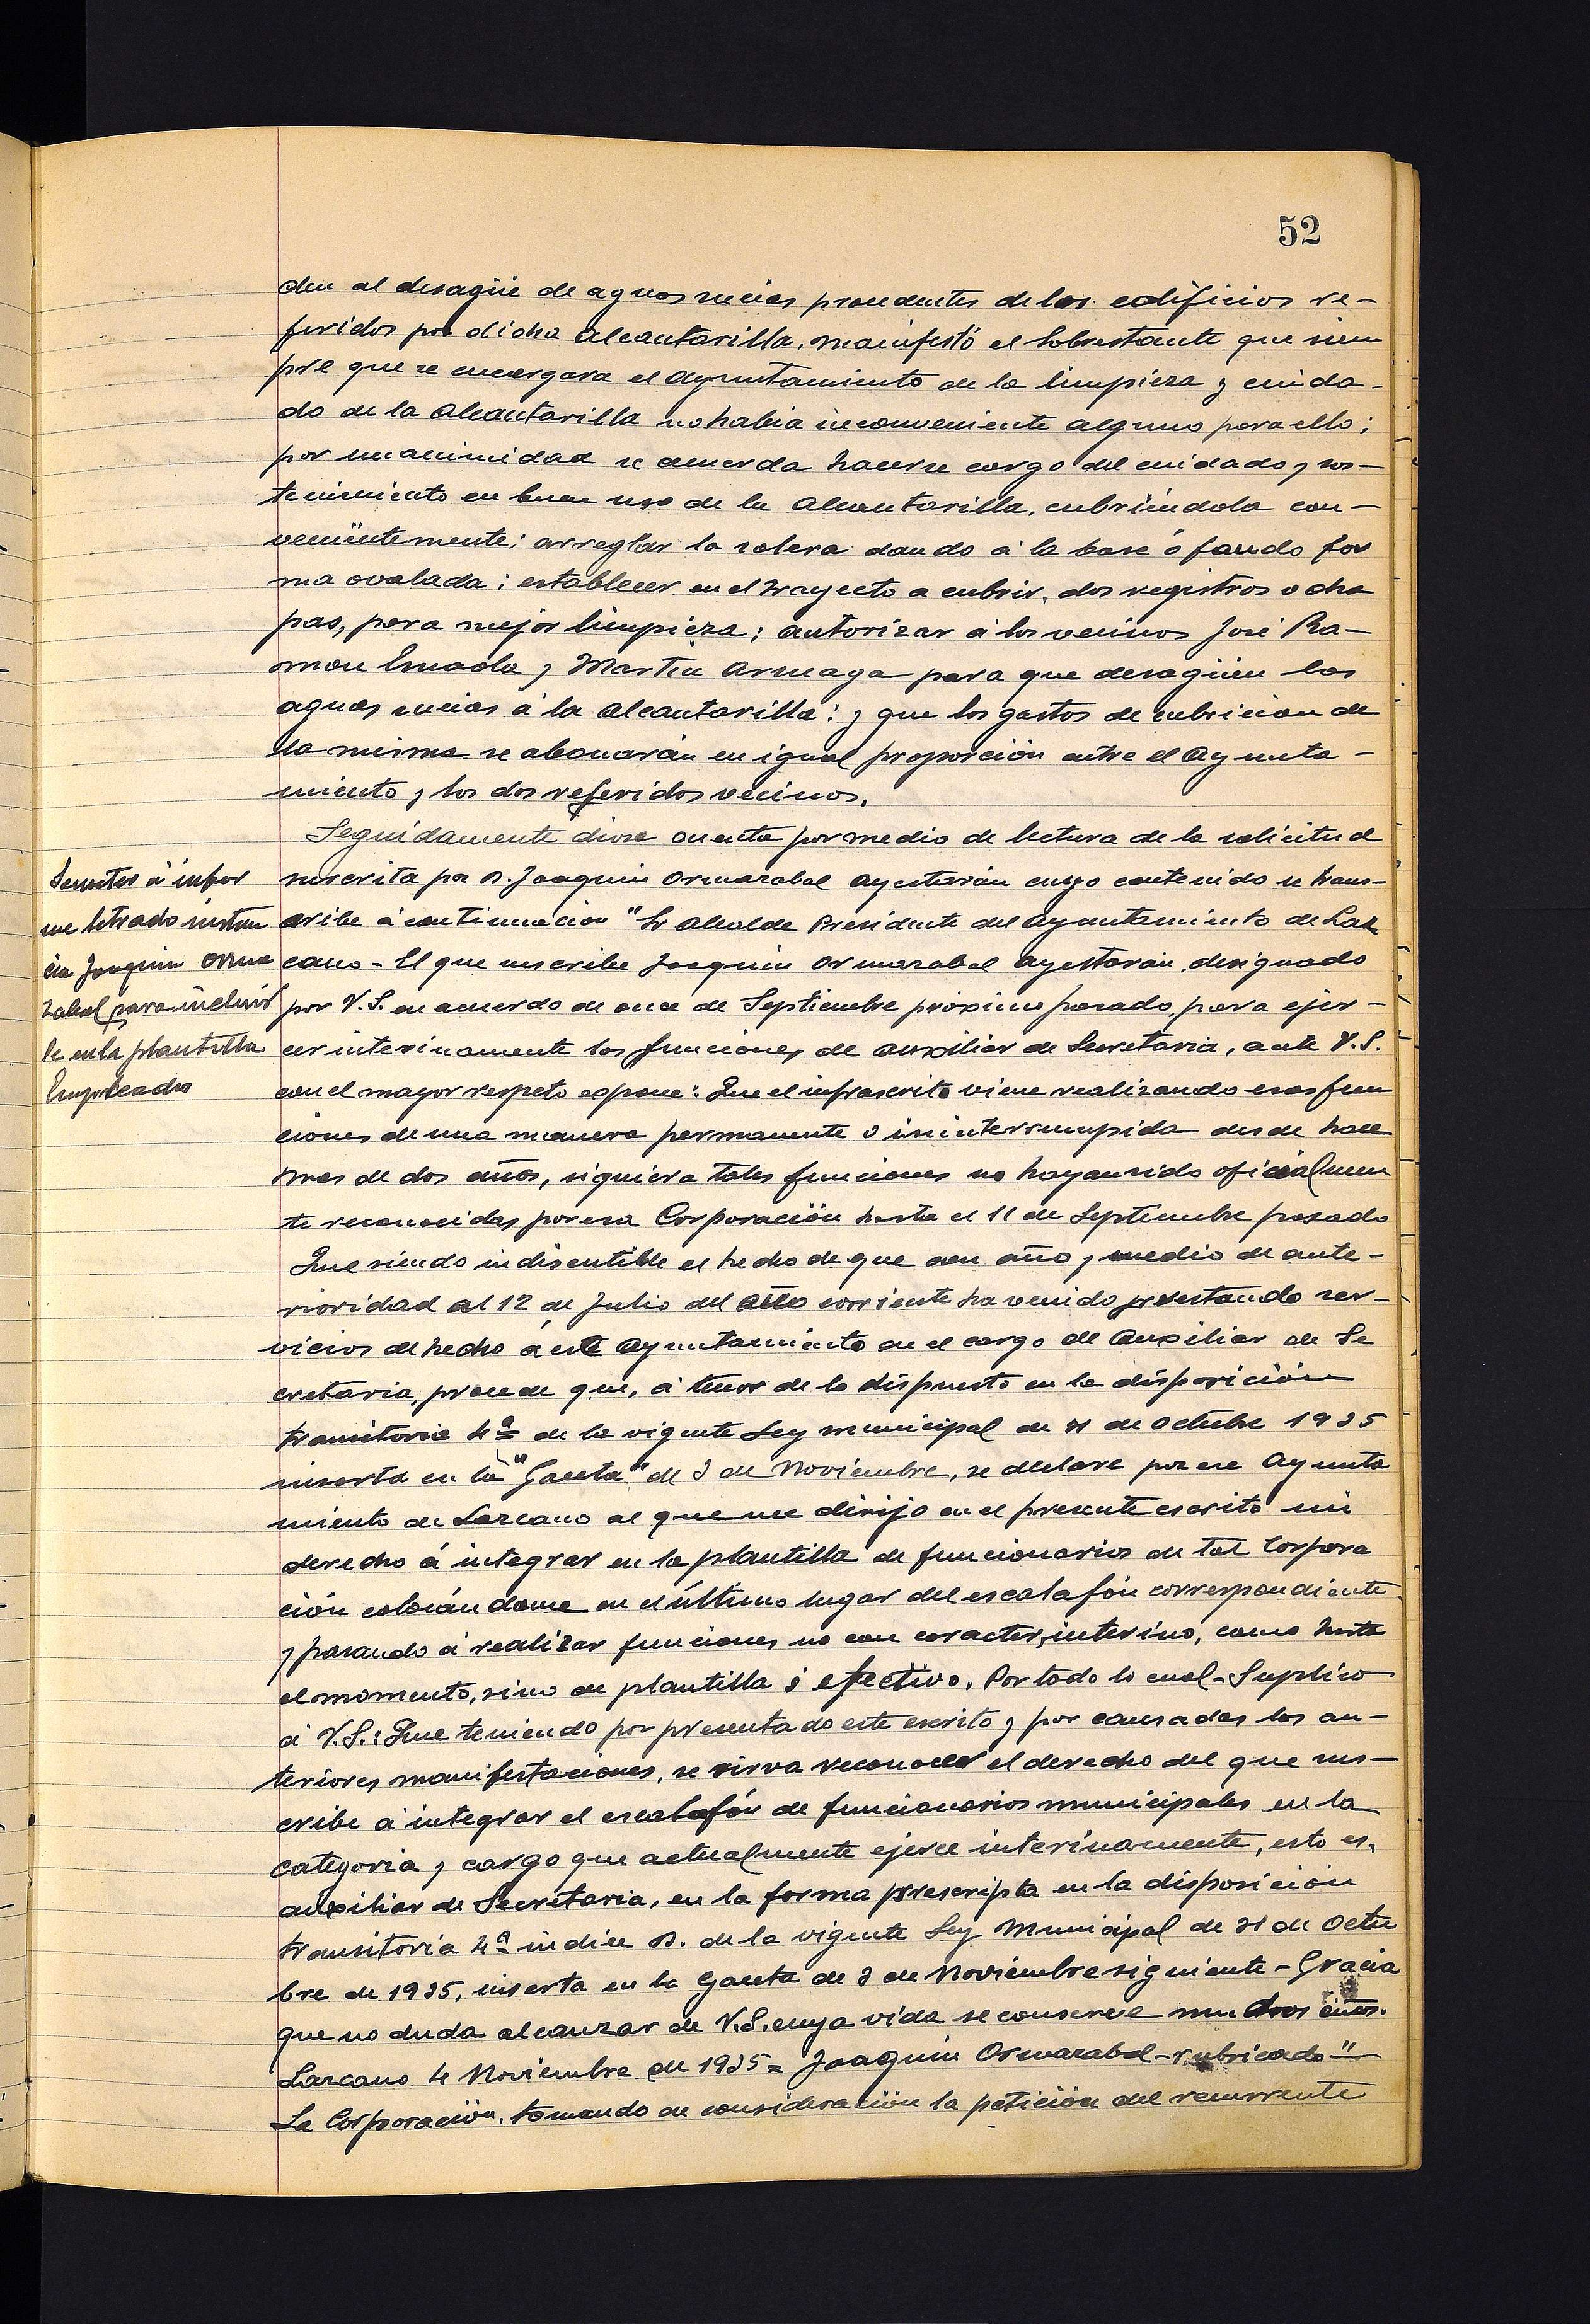 52
den al desagüe de aguas sucias procedentes de los edificios re-
feridos por dicha alcantarilla, manifestó el Sobrestante que siem
pre que se encargara el Ayuntamiento de la limpieza y cuida-
do de la alcantarilla no habia inconveniente alguno para ello;
por unanimidad se acuerda hacerse cargo del cuidado y sos-
tenimiento en buen uso de la alcantarilla, cubriéndola con-
venientemente; arreglar la solera dando á la base ó fondo for
ma ovalada; establecer en el trayecto a cubrir, dos registros o cha
pas, para mejor limpieza; autorizar á los vecinos José Ra-
mon y Martin para que desagüen las
aguas sucias á la alcantarilla; y que los gastos de cubricion de
la misma se abonarán en igual proporción entre el Ayunta-
miento y los dos referidos vecinos.
Seguidamente diose cuenta por medio de lectura de la solicitud
suscrita por D. Joaquin Ormazabal Ayestarán cuyo contenido se trans-
cribe á continuacion "Sr Alcalde Presidente del Ayuntamiento de Laz
cano - El que suscribe Joaquin Ormazabal Ayestarán, designado
por V.S. en acuerdo de once de Septiembre próximo pasado, para ejer-
cer interinamente las funciones de auxiliar de Secretaria, ante V.S.
con el mayor respeto expone: Que el infrascrito viene realizando esas fun
ciones de una manera permanente é ininterrumpida desde hace
mas de dos años, siquiera tales funciones no hayan sido oficialmen
te reconocidas por esa Corporación hasta el 11 de Septiembre pasado
Que siendo indiscutible el hecho de que con año y medio de ante-
rioridad al 12 de Julio del año corriente ha venido prestando ser-
vicios de hecho á este Ayuntamiento en el cargo de Auxiliar de Se
cretaria, procede que, á tenor de lo dispuesto en la disposición
transitoria 4ª de la vigente Ley municipal de 31 de Octubre 1935
inserta en la "Gaceta" de 3 de Noviembre, se declare por ese Ayunta
miento de Lazcano al que me dirijo en el presente escrito mi
derecho á integrar en la plantilla de funcionarios de tal Corpora
ción colocándome en el último lugar del escalafón correspondiente
y pasando á realizar funciones no con caracter interino, como hasta
el momento, sino de plantilla é efectivo. Por todo lo cual - Suplico
á V.S.: Que teniendo por presentado este escrito y por causadas las an-
teriores manifestaciones, se sirva reconocer el derecho del que sus-
cribe á integrar el escalafón de funcionarios municipales en la
categoria y cargo que actualmente ejerce interinamente, esto es,
auxiliar de Secretaria, en la forma prescripta en la disposición
transitoria 4ª indice B. de la vigente Ley Municipal de 31 de Octu
bre de 1935, inserta en la Gaceta de 3 de Noviembre siguiente - Gracia
que no duda alcanzar de V.S. cuya vida se conserve muchos años.
Lazcano 4 Noviembre de 1935 = Joaquin Ormazabal - rubricado"
La Corporación, tomando en consideración la petición del recurrente
Someter á infor
me letrado instan
cia Joaquin Orma
zabal para incluir
le en la plantilla
Empleados